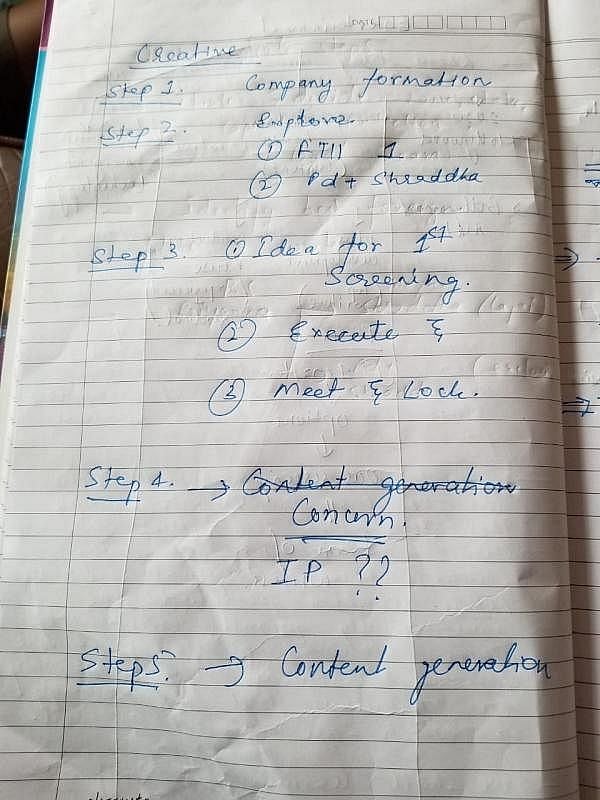 Creative
Step 1. Company formation
Step 2. Explore.
① FTII 1
② Pd + Shraddha
Step 3. ① Idea for 1st
Screening.
② Execute &
③ Meet & Lock.
Step 4. → Content generation
Concern.
IP ??
Step 5. → Content generation